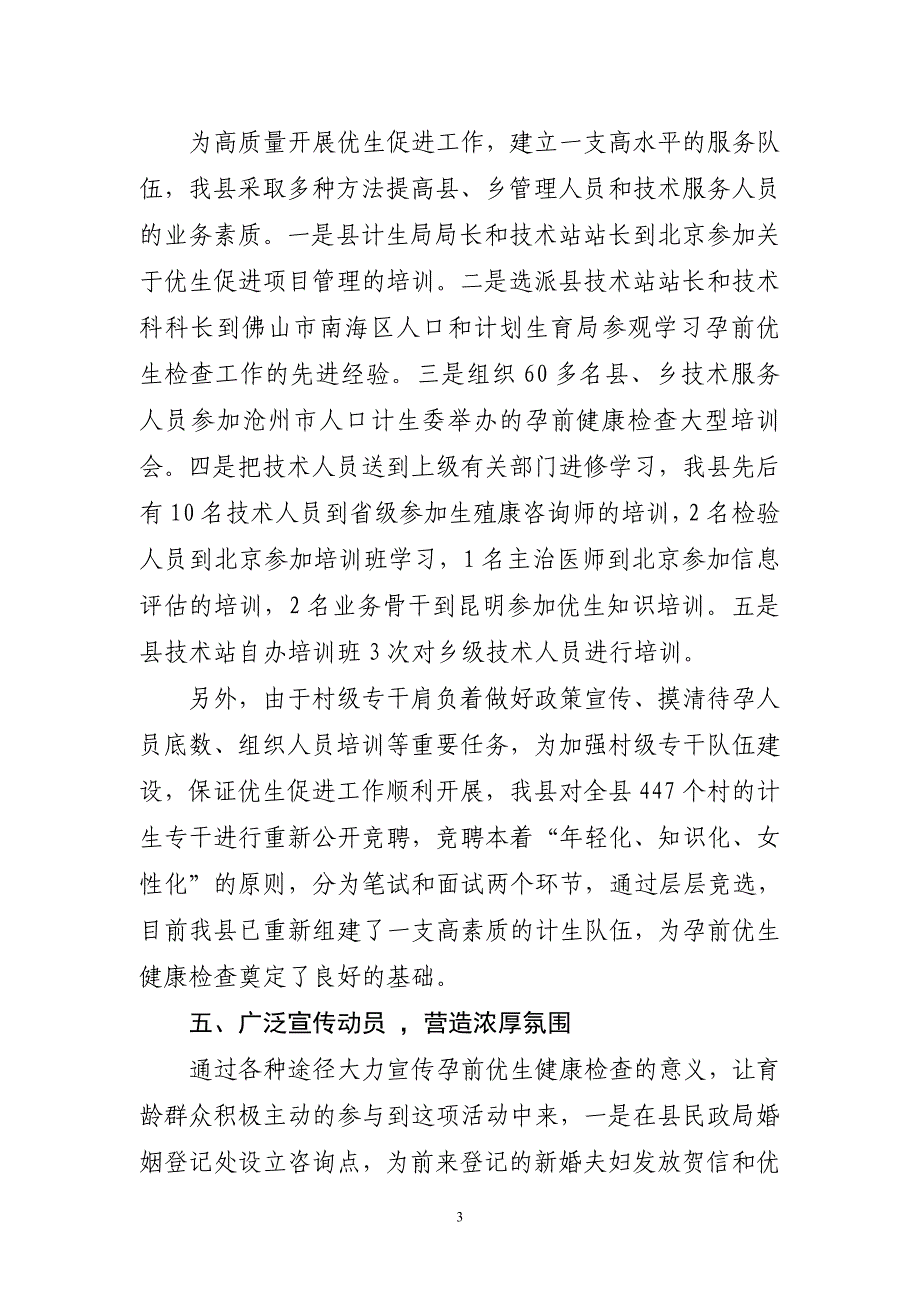 为高质量开展优生促进工作，建立一支高水平的服务队
伍，我县采取多种方法提高县、乡管理人员和技术服务人员
的业务素质。一是县计生局局长和技术站站长到北京参加关
于优生促进项目管理的培训。二是选派县技术站站长和技术
科科长到佛山市南海区人口和计划生育局参观学习孕前优
生检查工作的先进经验。三是组织 60 多名县、乡技术服务
人员参加沧州市人口计生委举办的孕前健康检查大型培训
会。四是把技术人员送到上级有关部门进修学习，我县先后
有 10 名技术人员到省级参加生殖康咨询师的培训，2 名检验
人员到北京参加培训班学习，1 名主治医师到北京参加信息
评估的培训，2 名业务骨干到昆明参加优生知识培训。五是
县技术站自办培训班 3 次对乡级技术人员进行培训。
另外，由于村级专干肩负着做好政策宣传、摸清待孕人
员底数、组织人员培训等重要任务，为加强村级专干队伍建
设，保证优生促进工作顺利开展，我县对全县 447 个村的计
生专干进行重新公开竞聘，竞聘本着“年轻化、知识化、女
性化”的原则，分为笔试和面试两个环节，通过层层竞选，
目前我县已重新组建了一支高素质的计生队伍，为孕前优生
健康检查奠定了良好的基础。
五、广泛宣传动员 ，营造浓厚氛围
通过各种途径大力宣传孕前优生健康检查的意义，让育
龄群众积极主动的参与到这项活动中来，一是在县民政局婚
姻登记处设立咨询点，为前来登记的新婚夫妇发放贺信和优
3